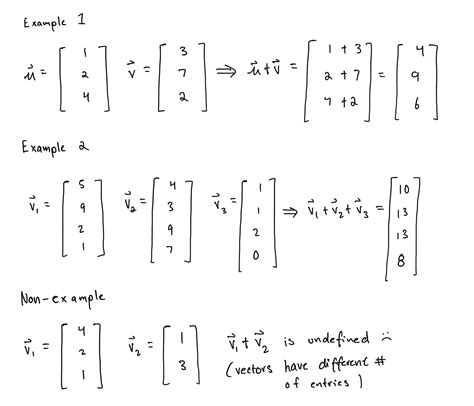 Example 1
u⃗ = [1 2 4] v⃗ = [3 7 2] ⇒ u⃗+v⃗ = [1 + 3 2 + 7 4 + 2] = [4 9 6]
Example 2
v⃗₁ = [5 9 2 1] v⃗₂ = [4 3 9 7] v⃗₃ = [1 1 2 0] ⇒ v⃗₁+v⃗₂+v⃗₃ = [10 13 13 8]
Non-example
v⃗₁ = [4 2 1] v⃗₂ = [1 3] v⃗₁+v⃗₂ is undefined :(
(vectors have different #
of entries)